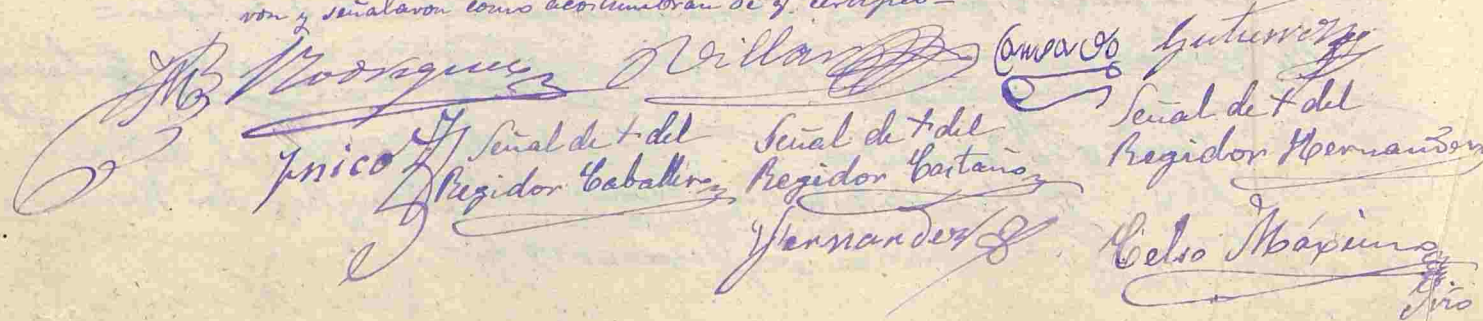 ron y señalaron como acostumbran de q. certifico
Rodriguez Villar Camacho Gutierrez
Ynico Señal de + del Señal de + del Señal de + del
Regidor Caballero Regidor Castaño Regidor Hernandez
Hernandez Celso Máximo
Srio